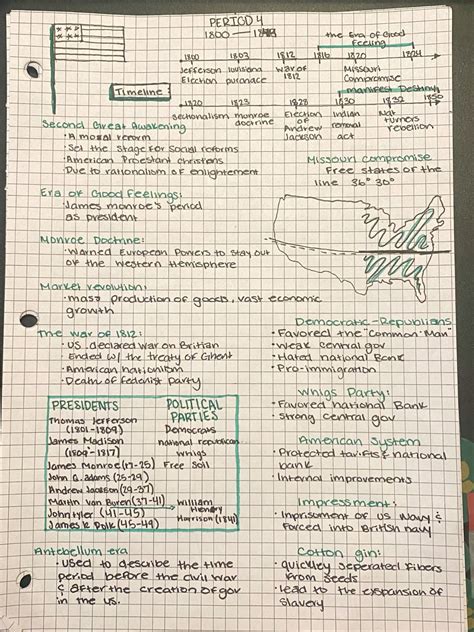 PERIOD 4
1800 — 1848
the Era of Good
Feeling
1800 1803 1812 1816 1820 1824
Jefferson Louisiana War of Missouri
Election puranace 1812 Compromise
manifest Destiny
Timeline
1820 1823 1828 1830 1832 1850
Sectionalism monroe Election Indian Nat
doctrine of removal turners
Andrew act rebellion
Jackson
Second Great Awakening
• A moral reform
• Set the stage for social reforms
• American Proestant christens
• Due to rationalism of enlightement
Missouri compromise
Free states of the
line 36° 30°
Era of Good Feelings:
• James monroe's period
as president
Monroe Doctrine:
• Warned European Powers to stay out
of the western Hemisphere
Market revolution:
• mass production of goods, vast economic
growth
The war of 1812:
• US declared war on Britian
• Ended w/ the treaty of Ghent
• American nationism
• Death of fedonlist party
Democratic-Republians
• Favored the "Common Man"
• Weak central gov
• Hated national Bank
• Pro-immigration
Whigs Party:
• Favored national Bank
• Strong Central gov
PRESIDENTS
Thomas Jefferson
(1801-1809)
James Madison
(1809-1817)
James Monroe (17-25)
John Q. adams (25-29)
Andrew Jackson (29-37)
Martin van Buren (37-41)
John tyler (41-45)
James k Polk (45-49)
POLITICAL
PARTIES
Democrats
national republican
whigs
Free Soil
William
Henery
Harrison (1841)
American System
• Protected tariffs & national
bank
• Internal improvements
Impressment:
• Imprisoment of US Navy &
forced into British navy
Antebellum era
• Used to describe the time
period before the civil war
& after the creation of gov
in the us.
Cotton gin:
• quickley seperated Fibers
from seeds
• lead to the expansion of
slavery